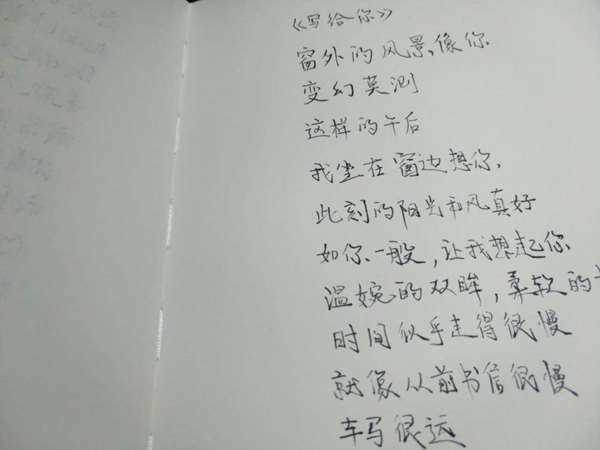 《写给你》
窗外的风景,像你
变幻莫测
这样的午后
我坐在窗边想你.
此刻的阳光和风真好
如你一般,让我想起你
温婉的双眸,柔软的
时间似乎走得很慢
就像从前书信很慢
车马很远